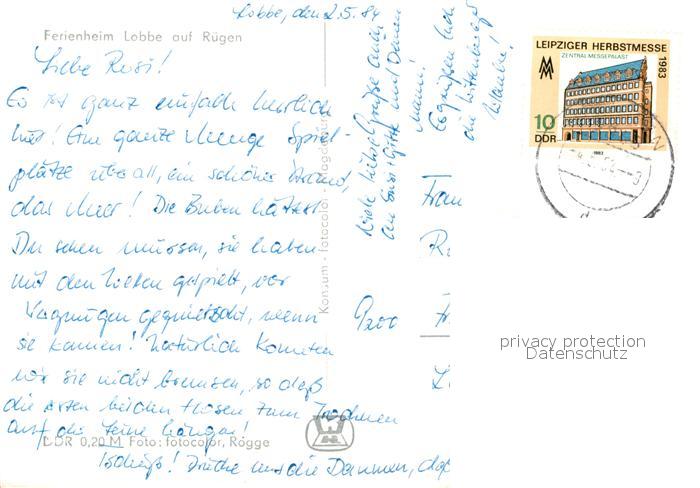 Lobbe, den 2.5.84
Ferienheim Lobbe auf Rügen
Liebe Rosi!
Es ist ganz einfach herrlich
hier! Eine ganze Menge Spiel-
plätze überall, ein schöner Strand,
das Meer! Die Buben hättest
Du sehen müssen, sie haben
mit den Wellen gespielt, vor
Vergnügen gequietscht, wenn
sie kamen! Natürlich konnten
wir sie nicht bremsen, so daß
die ersten beiden Hosen zum Trocknen
auf der Leine hängen!
DDR 0,20 M Foto: fotocolor, Rogge
Tschüß! Drücke uns die Daumen, daß
Viele liebe Grüße auch
an Susi, Gitta und Deinen
Mann!
Es grüßen Dich
die Wittenberger
Urlauber!
Konsum - fotocolor Magdeburg
LEIPZIGER HERBSTMESSE
ZENTRAL-MESSEPALAST
1983
10
DDR
1983
Frau
9200
privacy protection
Datenschutz